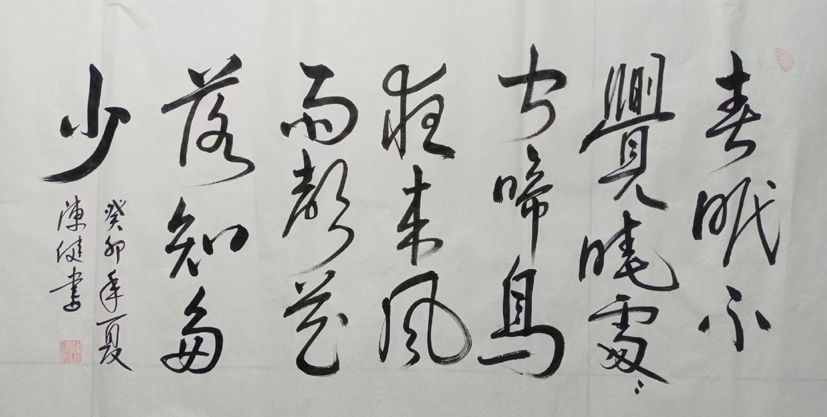 春眠不
覺曉處々
聞啼鳥
夜来風
雨聲花
落知多
少
癸卯年夏
陳健書